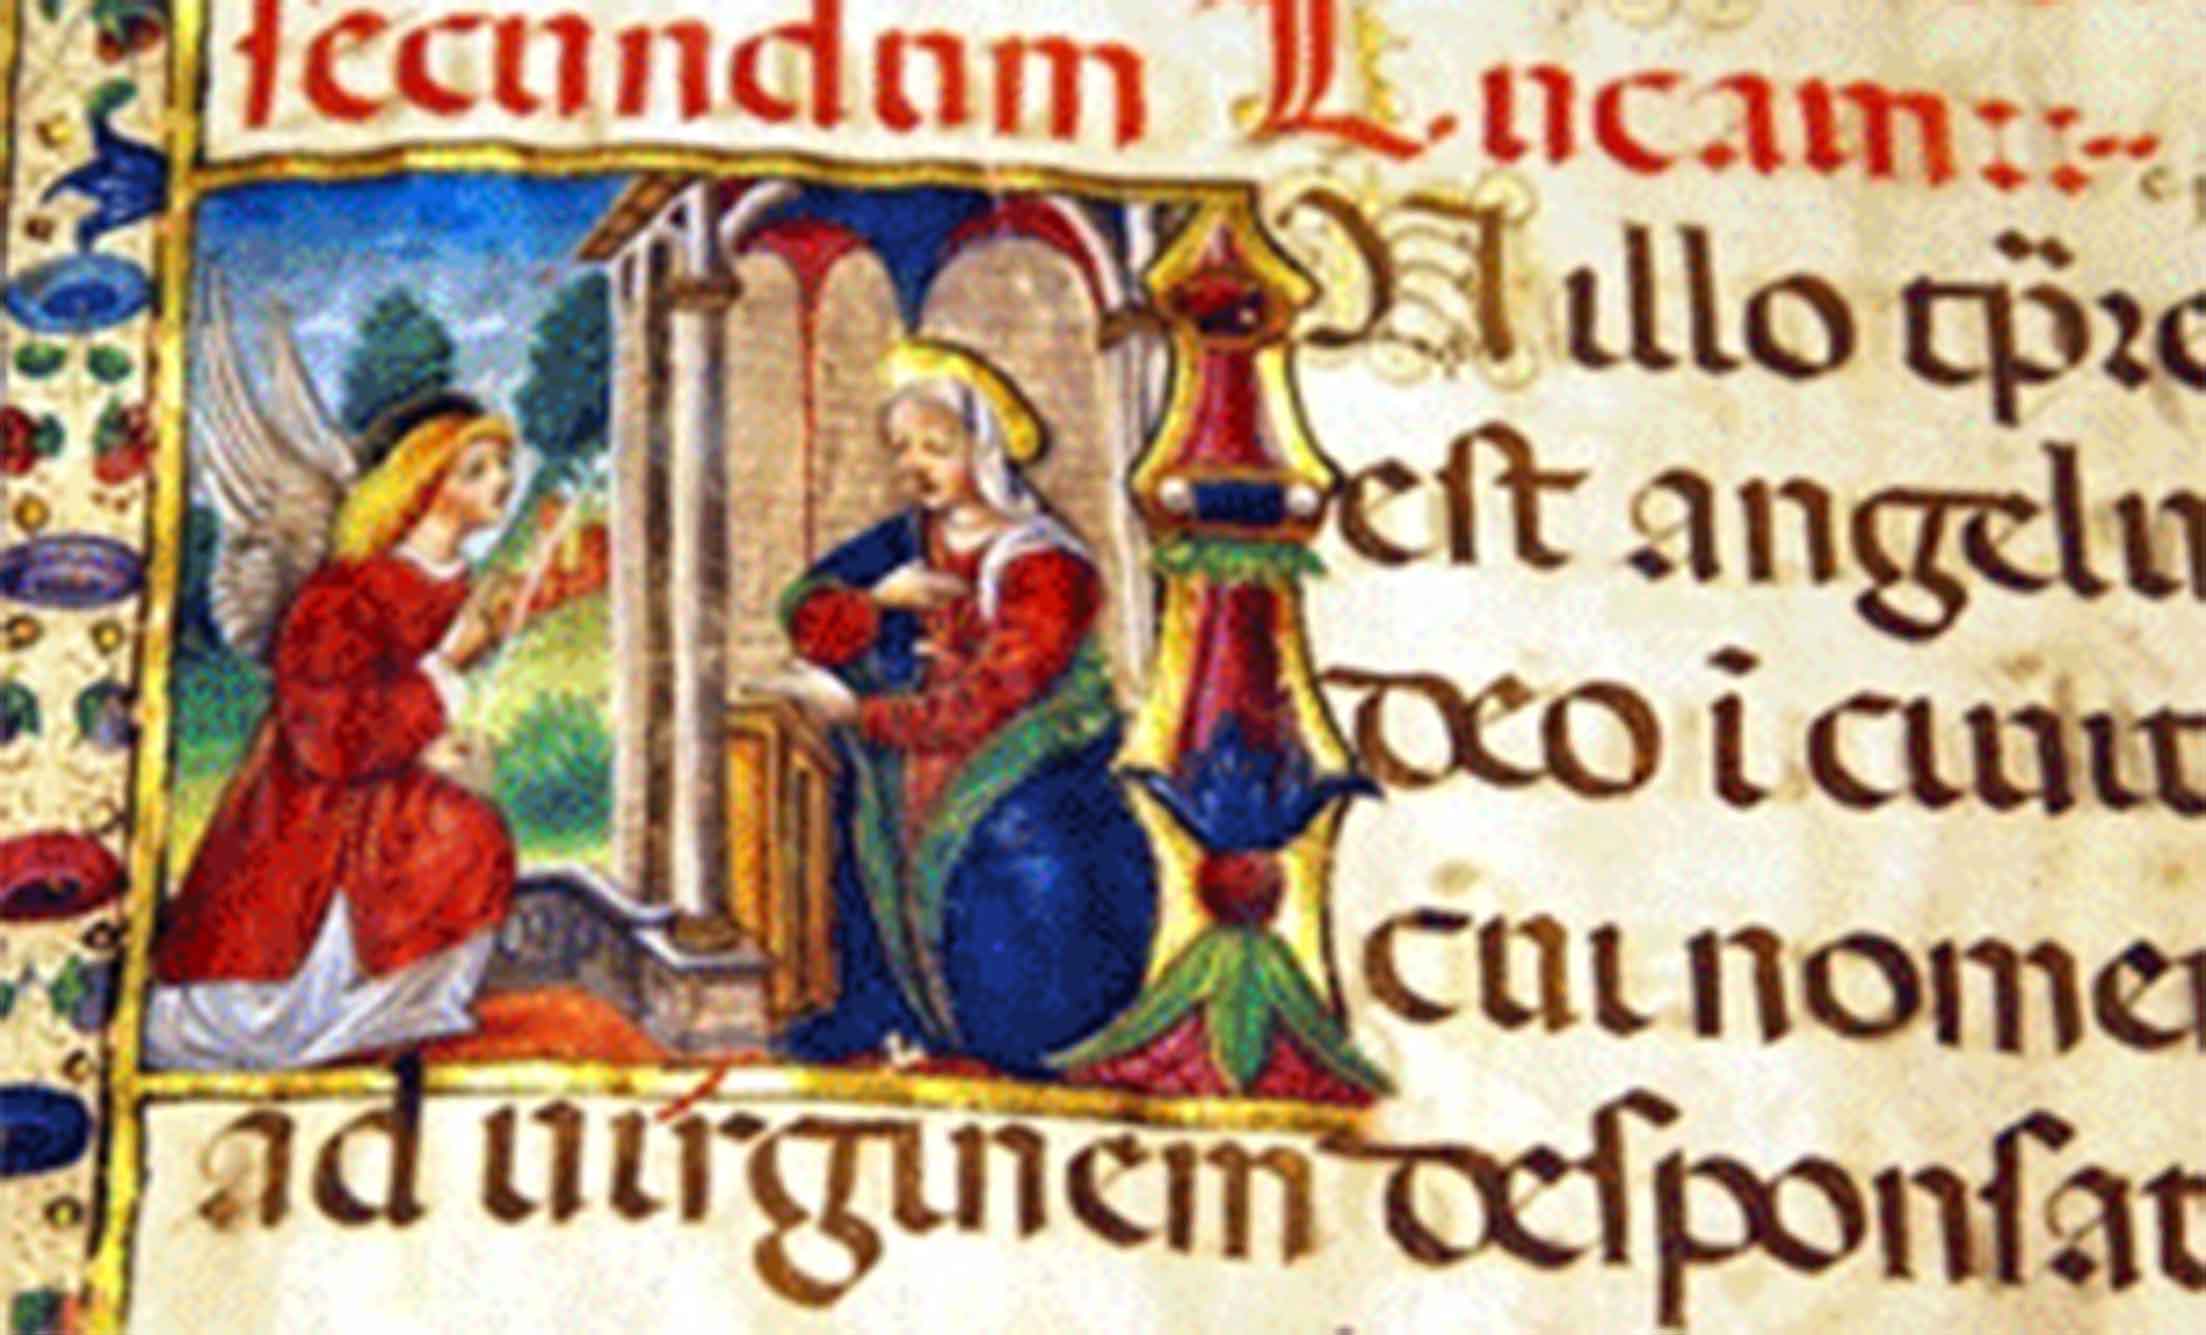 secundum Lucam::~
IN illo tp̄re
est angelu
deo i ciuit
cui nomen
ad uirginem desponsat